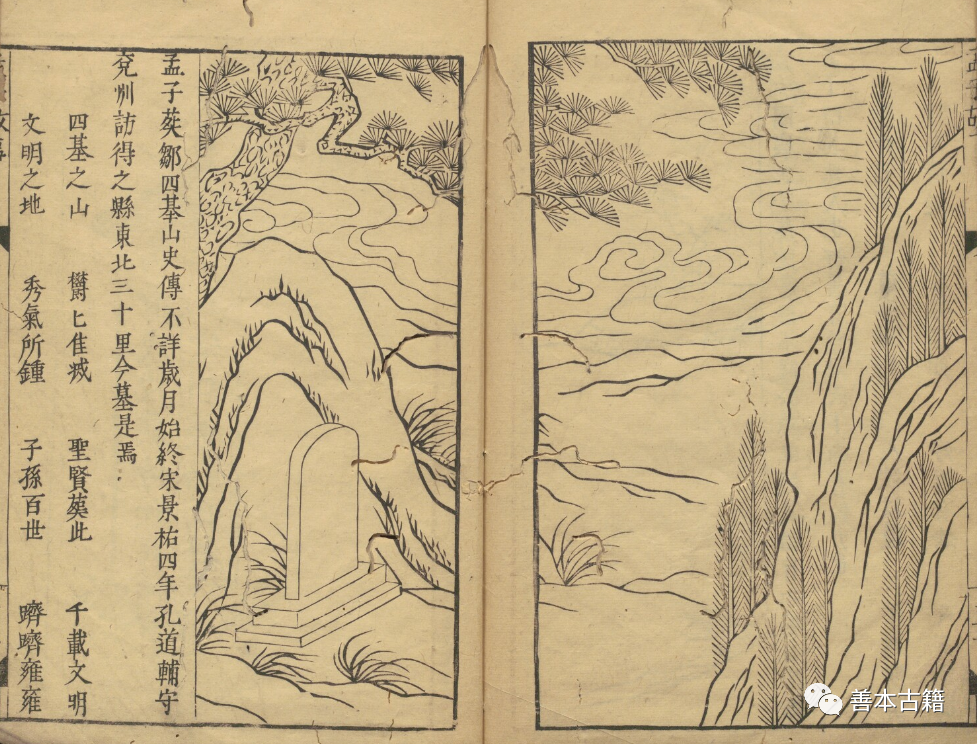 孟子葬鄒四基山史傳不詳歲月始終宋景祐四年孔道輔守
兗州訪得之縣東北三十里今墓是焉
四基之山　欝匕佳城　聖賢葬此　千載文明
文明之地　秀氣所鍾　子孫百世　躋躋雍雍
善本古籍